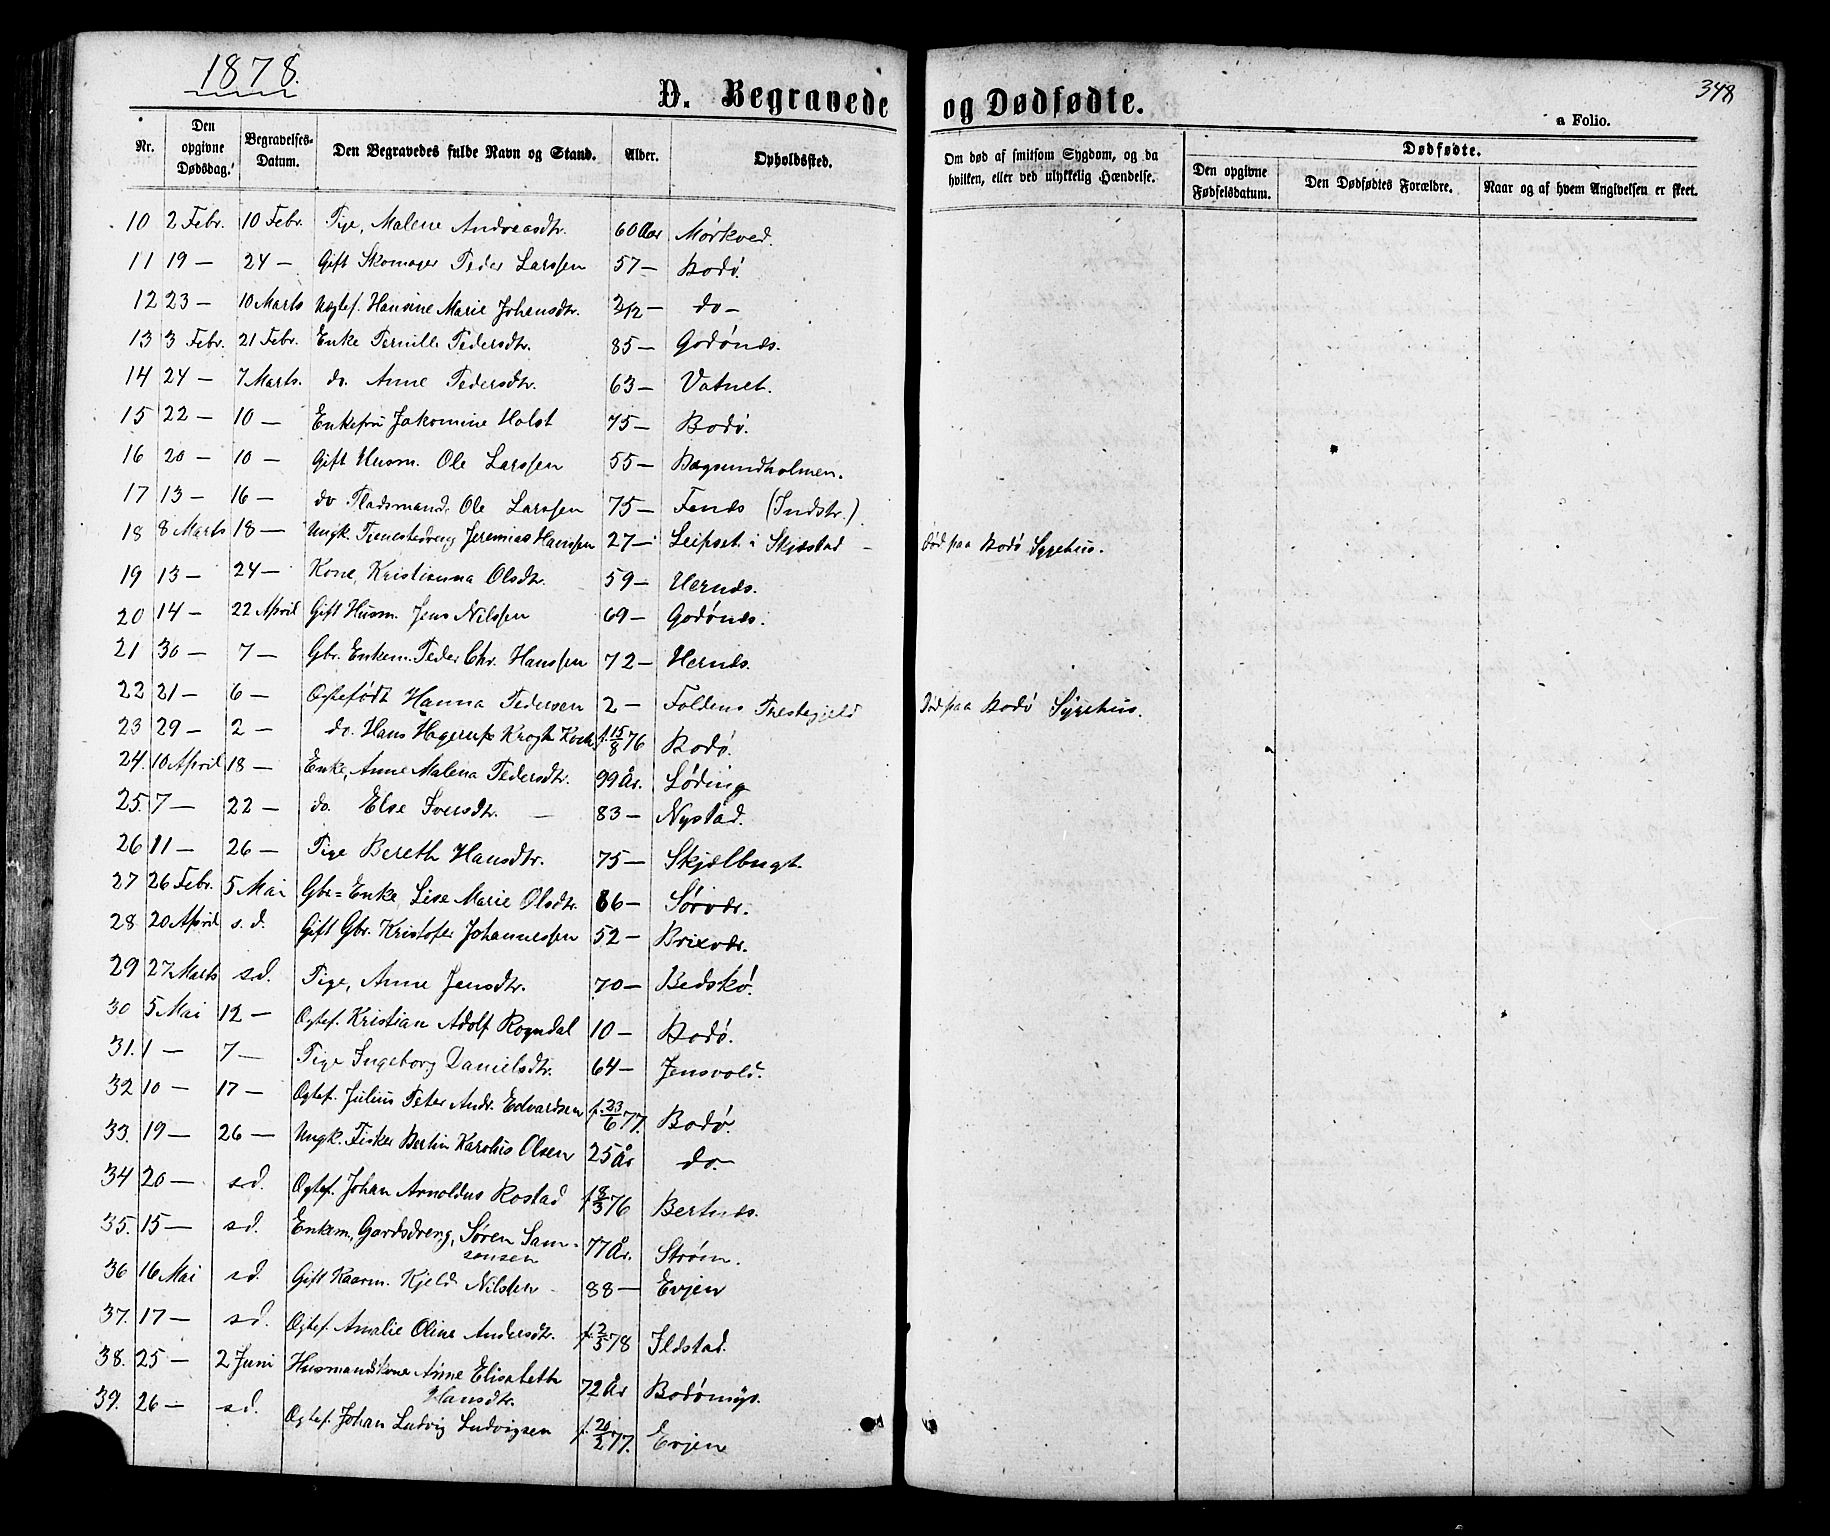 1878.
D. Begravede og Dødfødte.
348
a Folio.
Nr. Den opgivne Dødsdag. Begravelses-Datum. Den Begravedes fulde Navn og Stand. Alder. Opholdssted. Om død af smitsom Sygdom, og da hvilken, eller ved ulykkelig Hændelse. Dødfødte. Den opgivne Fødselsdatum. Den Dødfødtes Forældre. Naar og af hvem Angivelsen er skeet.
10 2 Febr. 10 Febr. Pige, Malene Andreasdtr. 60 Aar Mørkved.
11 19 — 24 — Gift Skomager Peder Larssen 57 — Bodø.
12 23 — 10 Marts Uægtef. Hansine Marie Johansdtr. 2/12 — do —
13 3 Febr. 21 Febr. Enke Pernille Pedersdtr. 85 — Godønes.
14 24 — 7 Marts. do. Anne Pedersdtr. 63 — Vatnet.
15 22 — 10 — Enkefru Jakomine Holst 75 — Bodø.
16 20 — 10 — Gift Husm. Ole Larssen 55 — Bagsundholmen.
17 13 — 16 — do Pladsmand, Ole Larssen 75 — Fenes (Indstr.).
18 8 Marts 18 — Ungk. Tjenestedreng Jeremias Hanssen 27 — Leifset i Skjerstad — Død paa Bodø Sygehus.
19 13 — 24 — Kone, Kristianna Olsdtr. 59 — Hernes.
20 14 — 22 April Gift Husm. Jens Nilssen 69 — Godønes.
21 30 — 7 — Gbr. Enkem. Peder Chr. Hanssen 72 — Hernes.
22 21 — 6 — Ægtefødt Hanna Pedersen 2 — Foldens Prestegjeld Død paa Bodø Sygehus.
23 29 — 2 — do. Hans Hagerups Krogh Koch f. 15/8 76 Bodø.
24. 10 April 18 — Enke, Anne Malena Pedersdtr. 99 År. Løding
25. 7 — 22 — do. Else Iversdtr. — 83 — Nystad.
26 11 — 26 — Pige Bereth Hansdtr. 75 — Skjælbugt.
27 26 Febr. 5 Mai Gbr= Enke, Lise Marie Olsdtr. 66 — Sørvær.
28 20 April s. d. Gift Gbr. Kristofer Johannessen 52 — Brixvær.
29 27 Marts s.d. Pige, Anne Jensdtr. 70 — Bedskø.
30 5 Mai 12 — Ægtef. Kristian Adolf Rogndal 10 — Bodø.
31. 1 — 7 — Pige Ingeborg Danielsdtr. 64 — Jensvold.
32 10 — 17 — Ægtef. Julius Peter Andr. Edvardsen f. 23/6 77. Bodø.
33. 19 — 26 — Ungk. Fisker Bertin Karolius Olsen 25 År do. —
34 20 — s.d. Ægtef. Johan Arnoldus Rostad f. 8/3 76 Bertnes.
35. 15 — s.d. Enkem, Gardsdreng, Søren Sam-
sonsen 77 År. Strøm.
36 16 Mai s.d. Gift Kaarm. Kjeld Nilssen 88 — Evjen
37. 17 — s.d. Ægtef. Amalie Oline Andersdtr. f. 2/5 78 Ildstad.
38. 25 — 2 Juni Husmandskone Anne Elisabeth
Hansdtr. 72 År Bodømyr.
39. 26 — s.d. Ægtef. Johan Ludvig Ludvigsen f. 20/2 77. Evjene